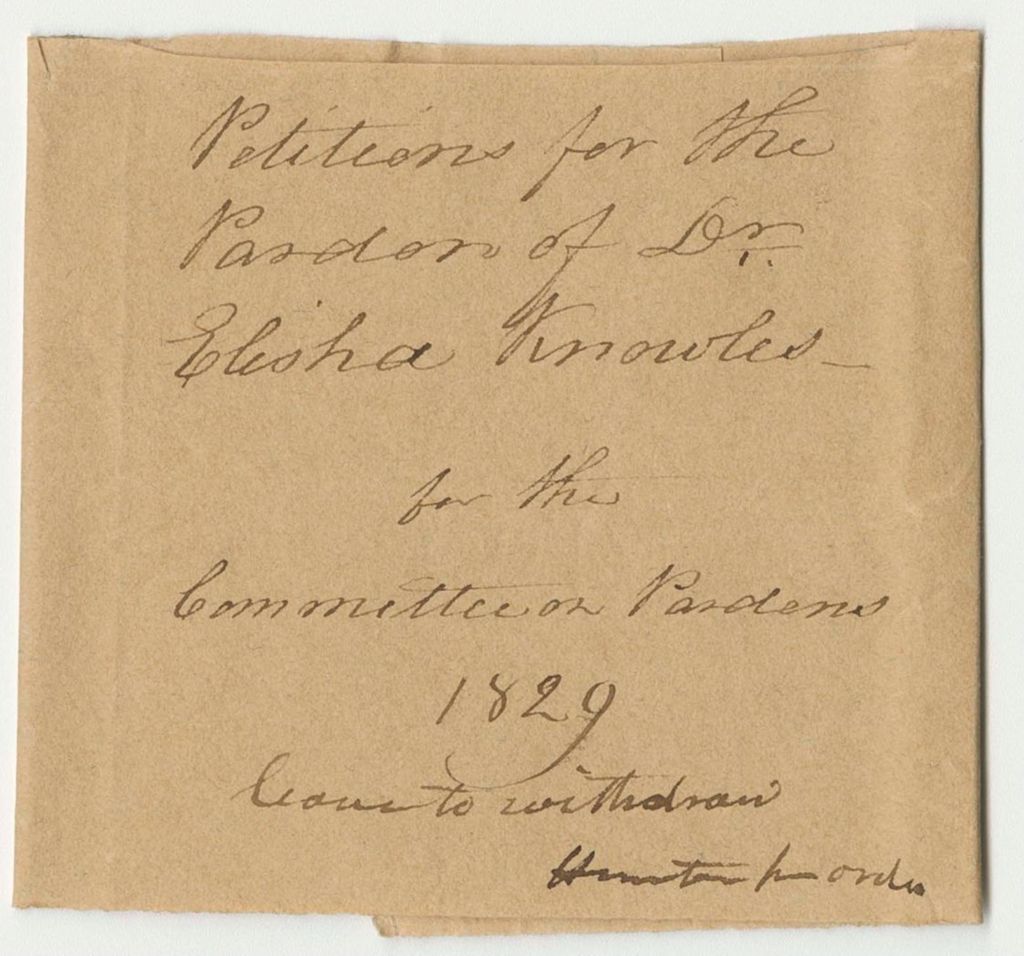 Petitions for the
Pardon of Dr.
Elisha Knowles
for the
Committee on Pardons
1829
leave to withdraw
Hunton pr order